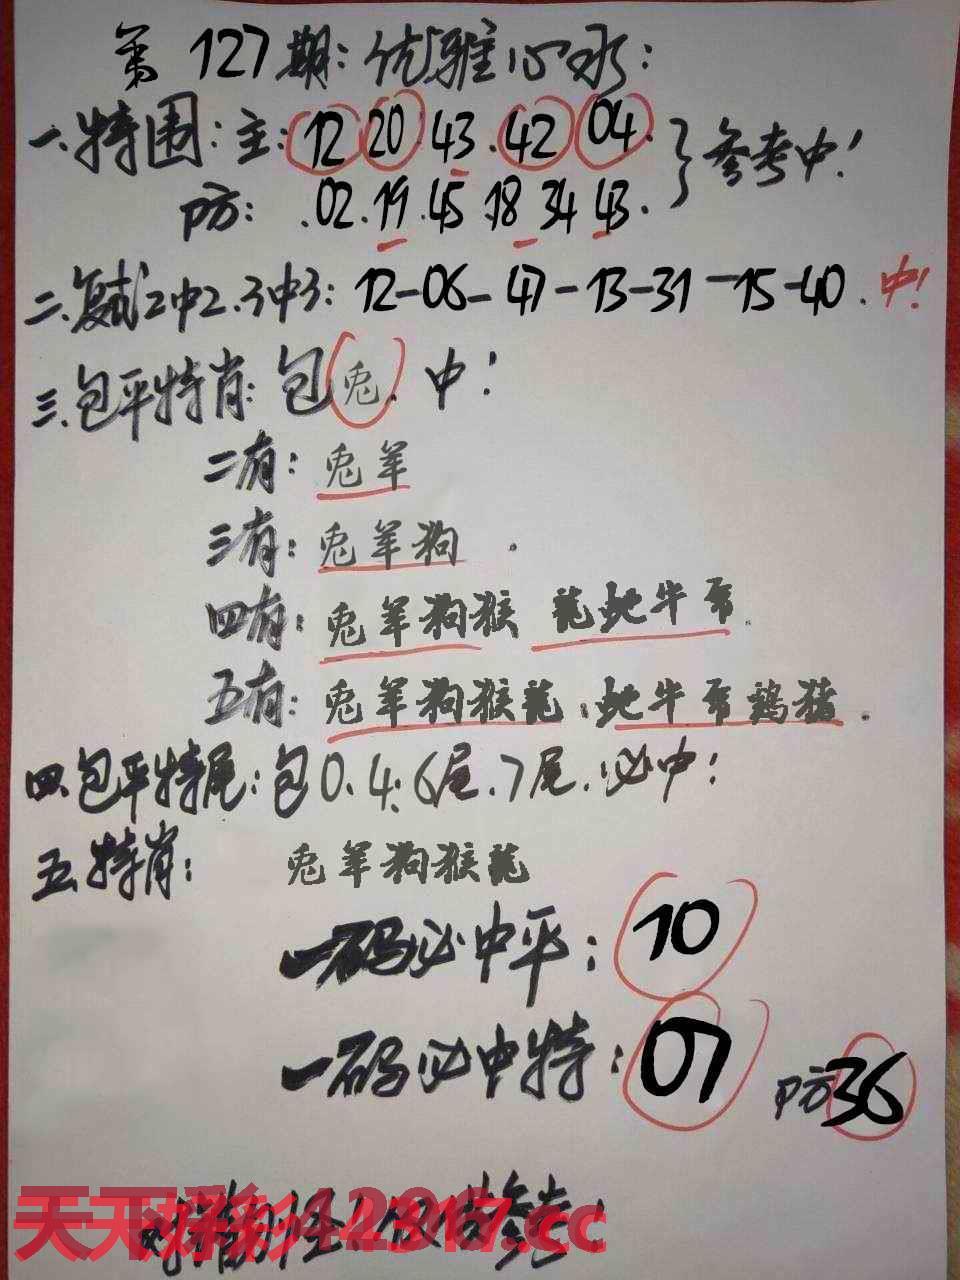 第127期:优雅心水:
一.特围:主:12 20 43.42 04.}参考中!
防:.02.19.45.18 34 43.
二.复试2中2.3中3:12-06-47-13-31-15-40.中!
三.包平特肖:包兔.中!
二有:兔羊
三有:兔羊狗.
四有:兔羊狗猴 龍蛇牛馬.
五有:兔羊狗猴龍.蛇牛馬鷄猪.
四.包平特尾:包0.4.6尾.7尾.必中!
五.特肖: 兔羊狗猴龍
一码必中平:10
一码必中特:07 防36
天下彩 4.2917.cc